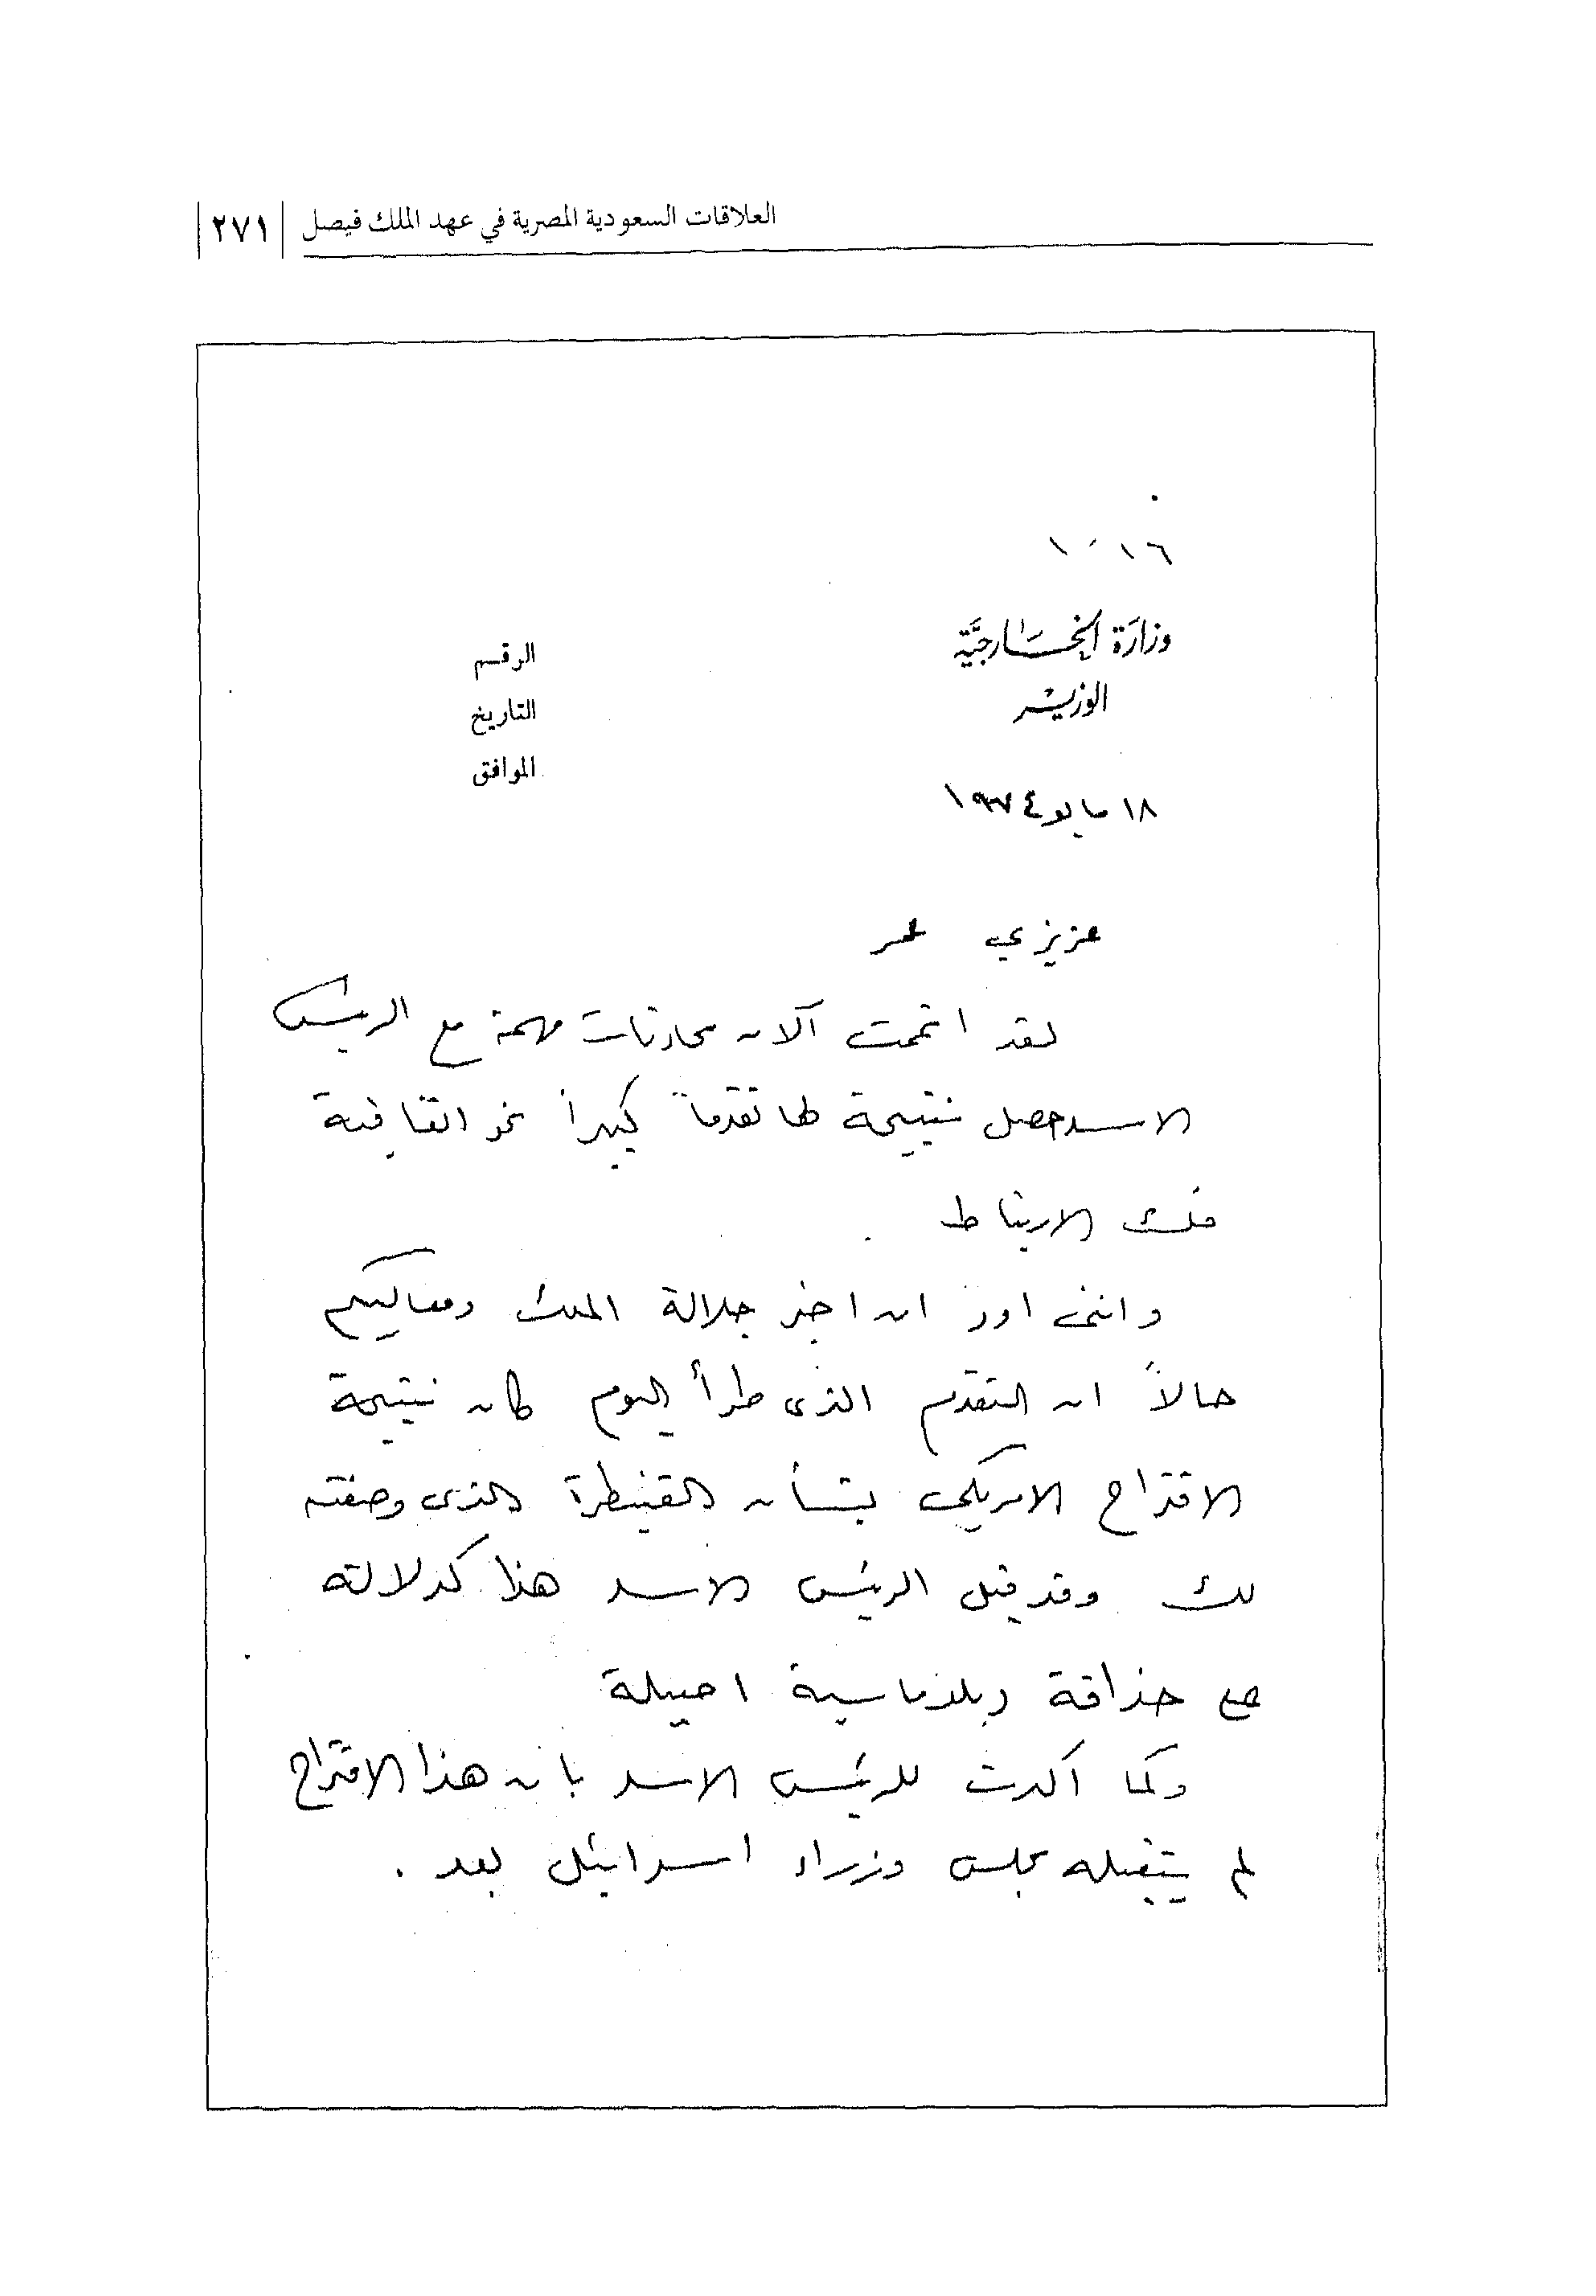 العلاقات السعودية المصرية في عهد الملك فيصل ٢٧١
وزارة الخارجية
الوزير
الرقم
التاريخ
الموافق
١٨ مايو ١٩٧٤
عزيزي عمر
لقد اتممت الآن محادثات مهمة مع الرئيس
الاسد حصل نتيجة لها تقدماً كبيراً نحو اتفاقية
فك الارتباط
وانني اود ان اخبر جلالة الملك ومعاليكم
حالاً ان التقدم الذى طرأ اليوم كان نتيجة
الاقتراح الامريكي بشأن القنيطرة الذى وصفته
لك وقد قبل الرئيس الاسد هذا كدلالة
على حذاقة دبلوماسية اصيلة
وكما اكدت للرئيس الاسد بان هذا الاقتراح
لم يتقبله مجلس وزراء اسرائيل بعد .